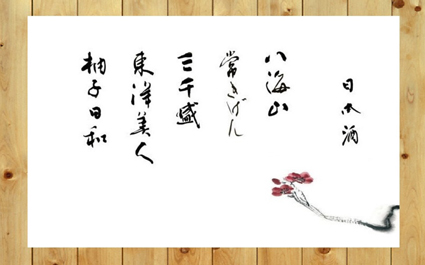 日本酒
八海山
常きげん
三千盛
東洋美人
柚子日和